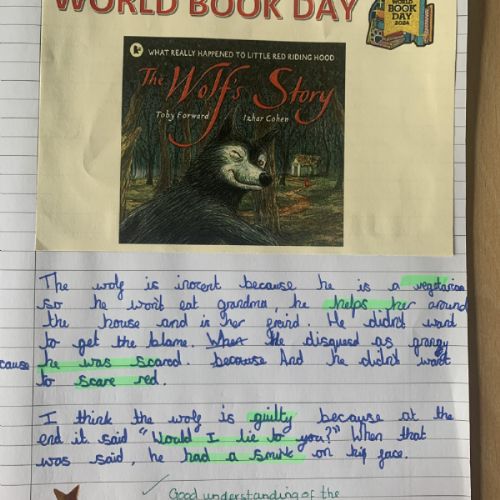 WORLD BOOK DAY
WORLD
BOOK
DAY
2024
WHAT REALLY HAPPENED TO LITTLE RED RIDING HOOD
The Wolf's Story
Toby Forward Izhar Cohen
The wolf is inocent because he is a vegetarian
so he won't eat grandma, he helps her around
the house and is her freind. He didn't want
to get the blame. When He disgused as grangy
cause he was scared. because And he didn't want
to scare red.
I think the wolf is guilty because at the
end it said "Would I lie to you?" When that
was said, he had a smirk on his face.
✓ Good understanding of the